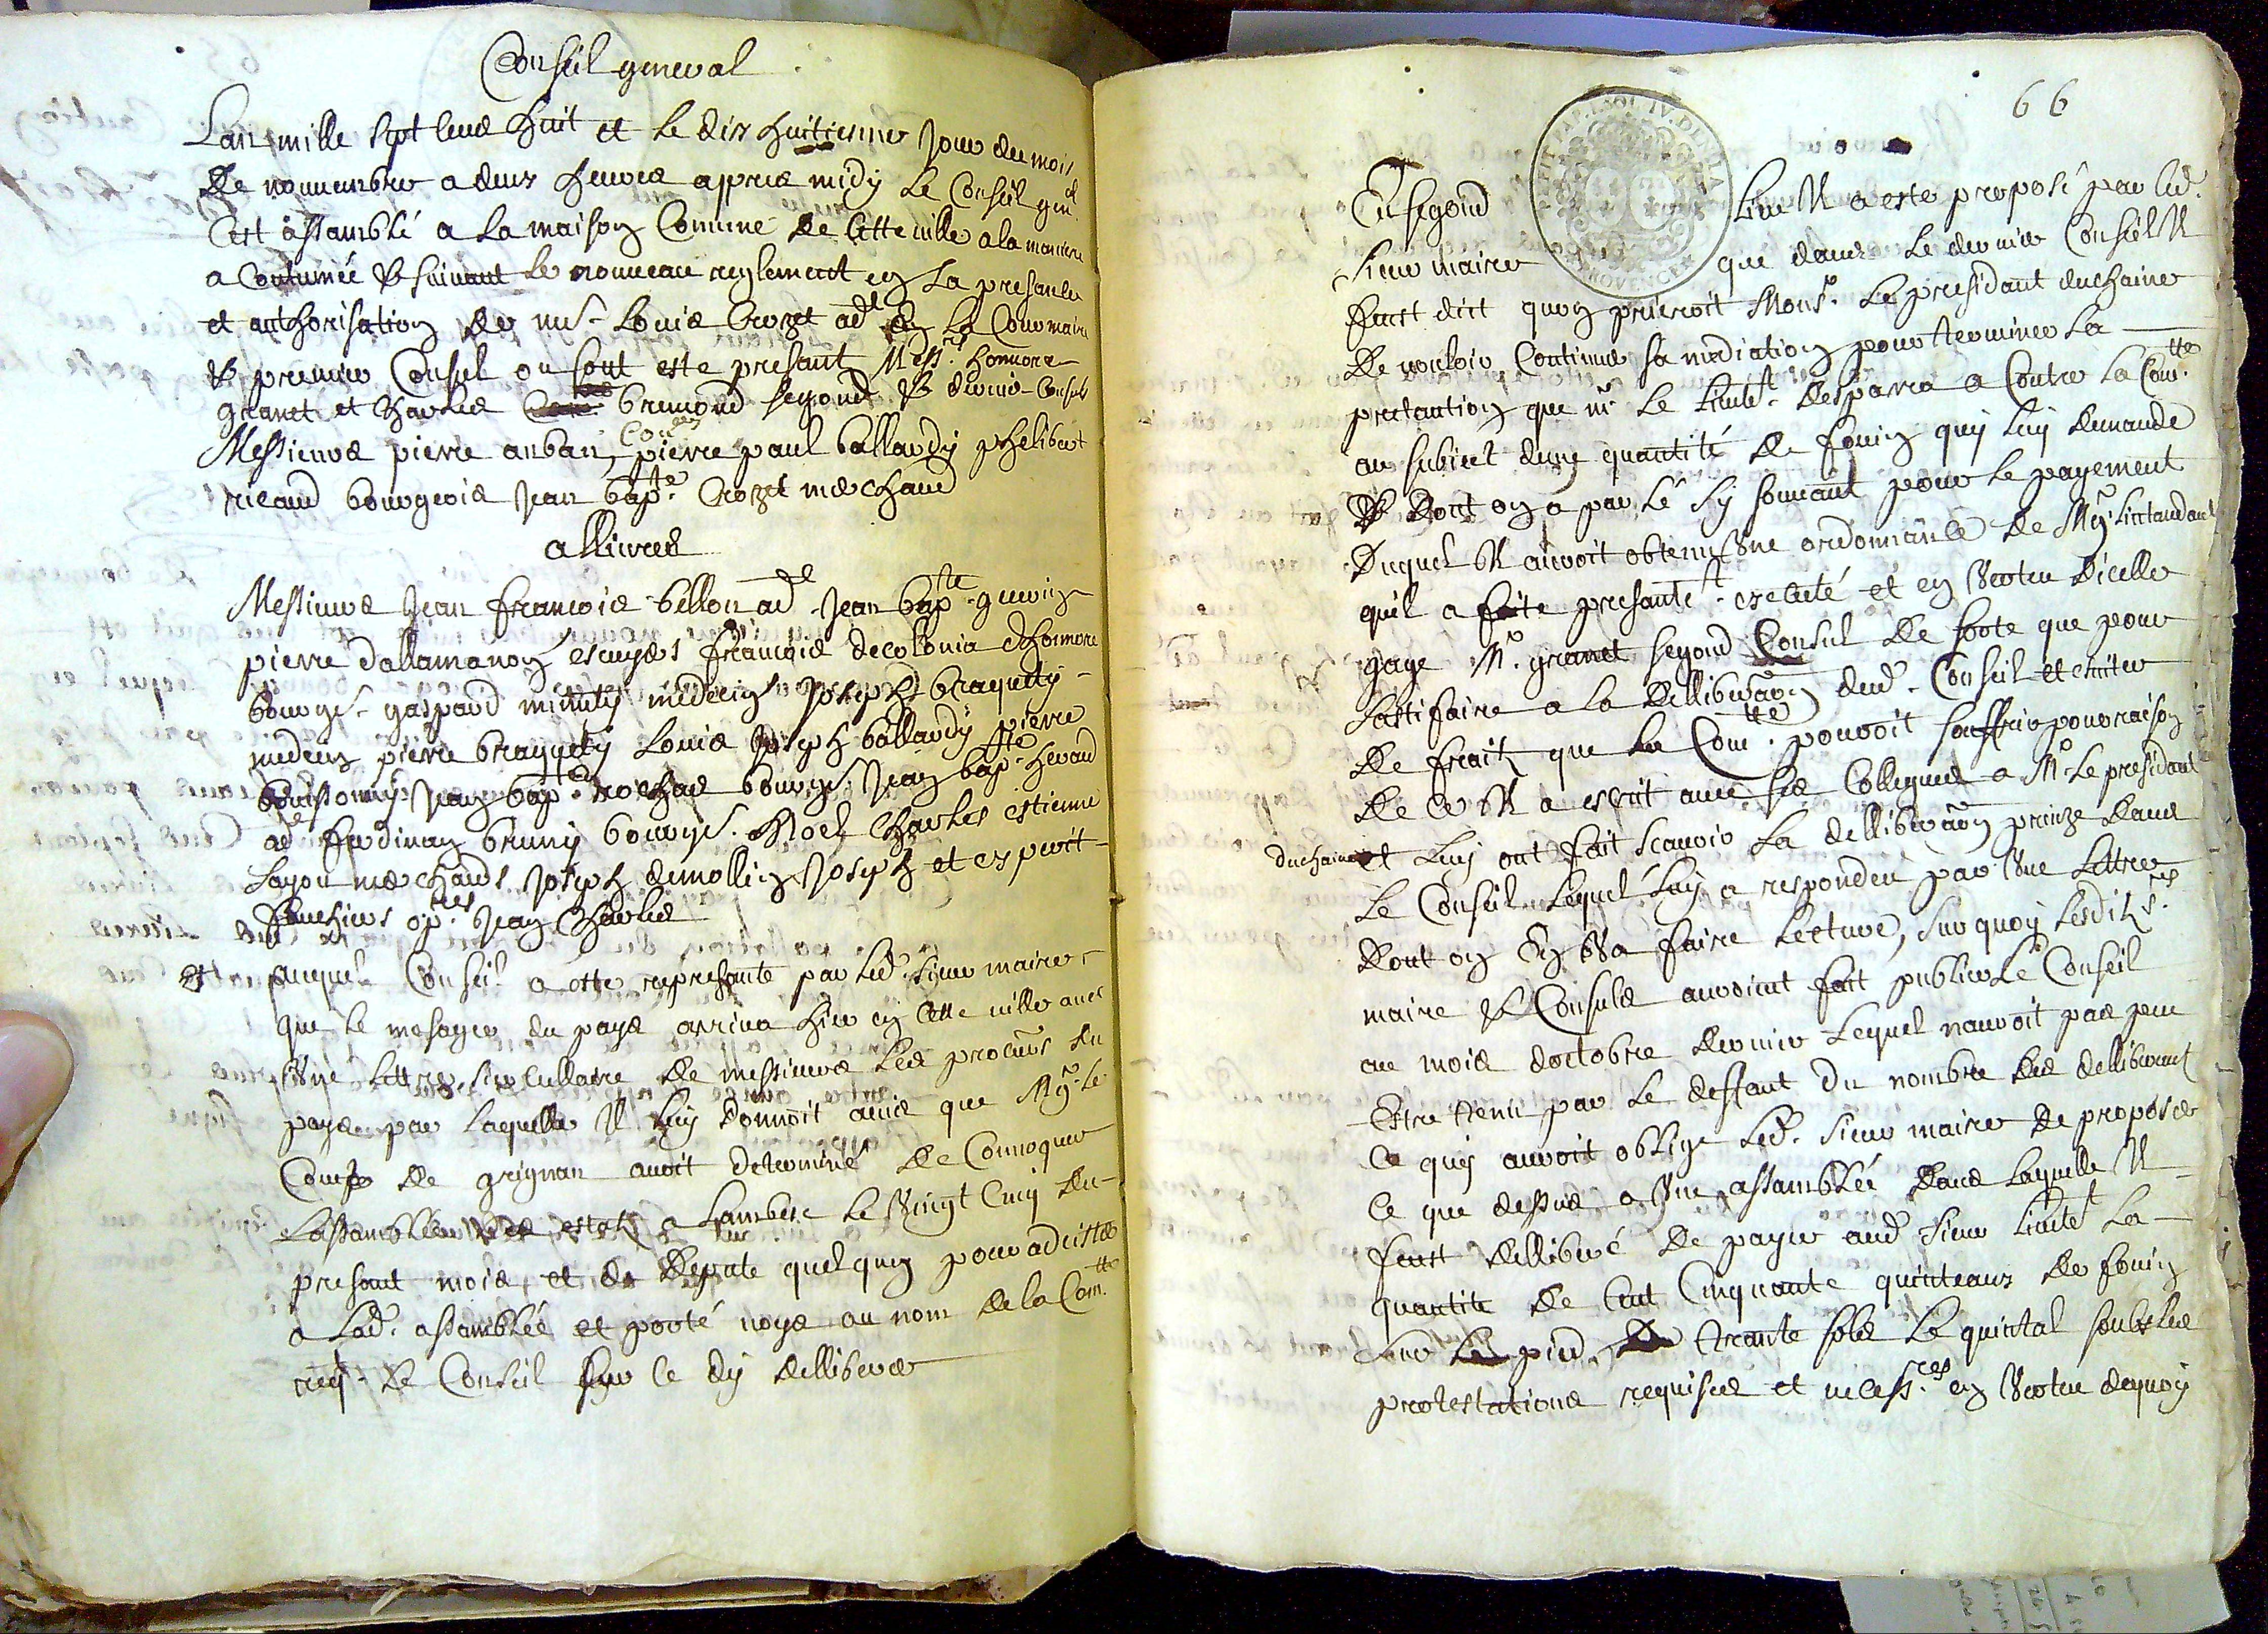 Conseil general
Lan mille sept cens huit et le dix huitiesme jour du mois
de nouuembre a deux heures appres midy le Conseil gen.al
cest assamblé a la maison Comune de cette uille a la maniere
acoutumée & suiuant le nouueau reglement en la presance
et authorisation de mr. Louis Crozet adt en la Cour maire
& premier Consul ou sont este presant Messrs. honnore
granet et charles bremond segond & dernier Consuls
Messieurs pierre auban, pierre paul ballardy phelibert
ricaud bourgeois jean bapte. Crozet marchand
alliures
Messieurs jean francois bellon ad. jean bapte. guerin
pierre dallamanon escuyers francois decolonia honnore
bourgs. gaspard minuty medecin joseph braquety
medecin pierre braquety Louis joseph ballardy pierre
bouissony jean bapte. rochas bourgs. jean bapte. heraud
ad. ferdinan bruny bourgs. Noel charles estienne
Layon marchands joseph demollin joseph et esperit
fauchiers opres. jean charles
et auquel Conseil a este represante par led. sieur maire
que le mesager du pays arriua hier en cette uille auec
une lettre circullaire de messieurs les procurs du
pays par laquelle il luy donnoit auis que Mgr. le
Comte de grignan auoit determiné de Conuoquer
Lassamblée des estats a Lambesc le vingt cinq du
presant mois et de depute quelqun pour adcister
a lad. assamblée et porté uoys au nom de la Comtte.
req. le Conseil sur ce dy delliberer
66
PETIT PAP. 1. SOL. IV. DEN. LA
PROVENCE
En segond lieu Il a este proposé par led.
sieur maire que dans le dernier Conseil Il
feust dict quon prieroit Monsr. le presidant duchaine
de uouloir Continue sa mediation pour terminer la
pretantion que mr. le Lieutt. desparra a Contre la Comtte.
au subiect dune quantité de fouin quy luy demande
& dont on a parlé sy souuant pour le payement
duquel Il auroit obtenu une ordonnance de Mgr. Lintandant
quil a faite presantet. executé et en vertu dicelle
gage Mr. granet segond Consul de sorte que pour
sastifaire a la delliberaon dud. Conseil et euiter
de fraits que la Comtte. pouuoit souffrir pour raison
de ce Il a escrit auec ses collegues a Mr. le presidant
duchaine et luy ont fait scauoir la delliberaon prinze dans
le Conseil lequel luy a respondeu par une lettre
dont on en va faire lecture, sur quoy lesdits srs.
maire & Consuls auroint fait publier le Conseil
au mois doctobre dernier lequel nauroit pas peu
estre tenu par le deffaut du nombre des delliberants
ce quy auroit oblige led. sieur maire de proposer
ce que dessus a une assamblée dans laquelle Il
feust delliberé de payer aud. sieur Lieutt. la
quantite de cent cinquante quinteaux de fouin
sur le pied de trante sols le quintal soubs les
protestations requises et necessres. en vertu dequoy